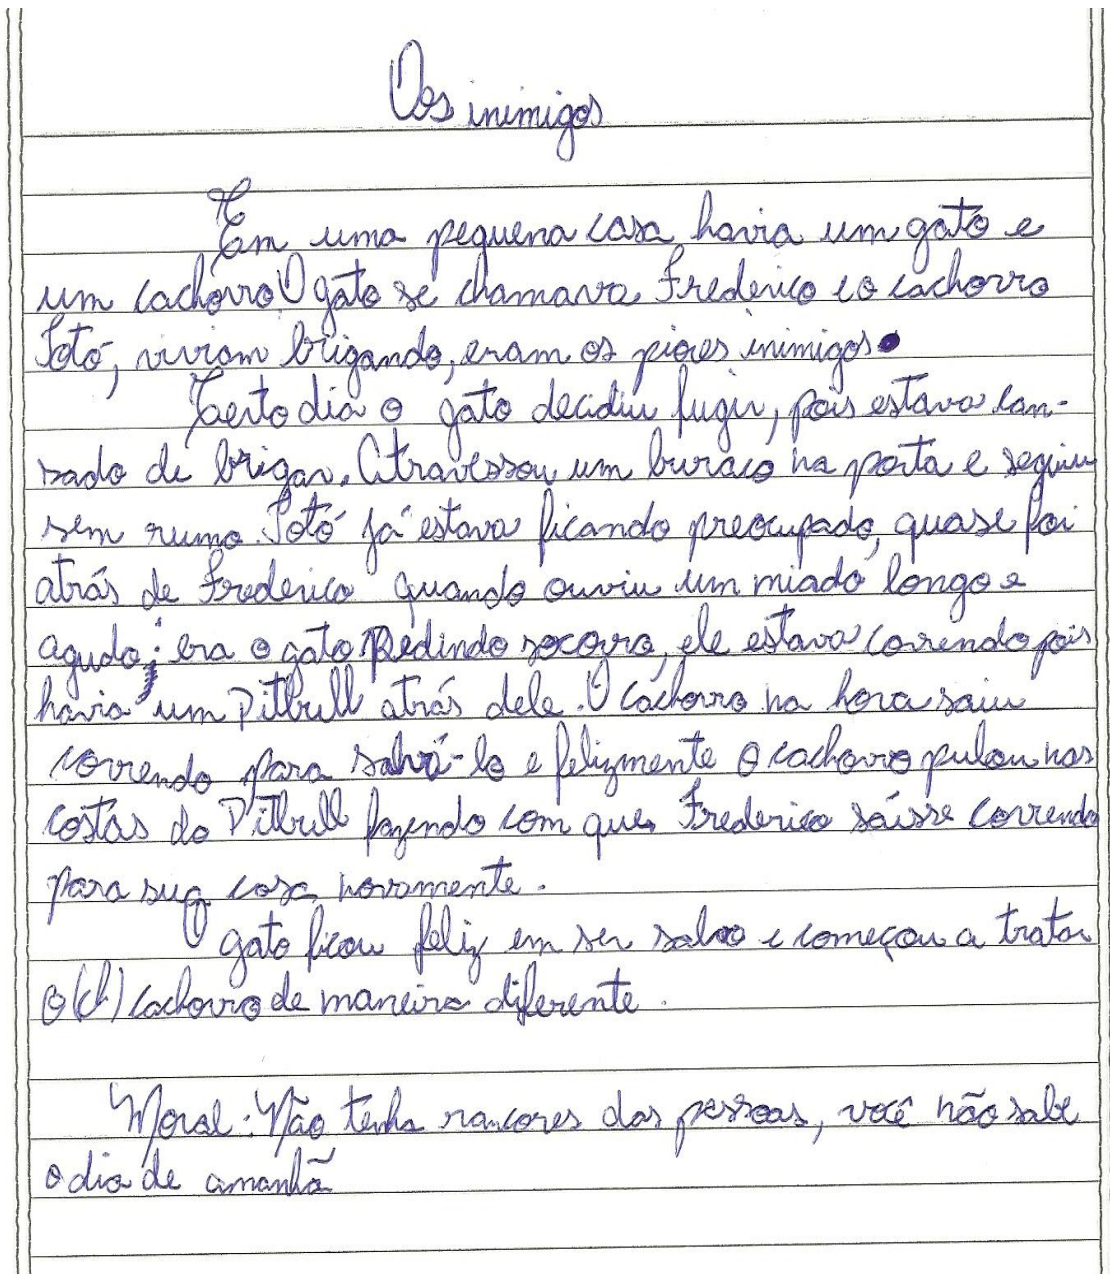 Os inimigos
Em uma pequena casa havia um gato e
um cachorro O gato se chamava Frederico e o cachorro
Totó, viviam brigando, eram os piores inimigos.
Certo dia o gato decidiu fugir, pois estava can-
sado de brigar. Atravessou um buraco na porta e seguiu
sem rumo. Totó já estava ficando preocupado, quase foi
atrás de Frederico quando ouviu um miado longo e
agudo; era o gato Pedindo socorro, ele estava correndo pois
havia um Pitbull atrás dele. O cachorro na hora saiu
correndo para salvá-lo e felizmente o cachorro pulou nas
costas do Pitbull fazendo com que Frederico saísse correndo
para sua casa novamente.
O gato ficou feliz em ser salvo e começou a tratar
o (ch) cachorro de maneira diferente.
Moral: Não tenha rancores das pessoas, você não sabe
o dia de amanhã